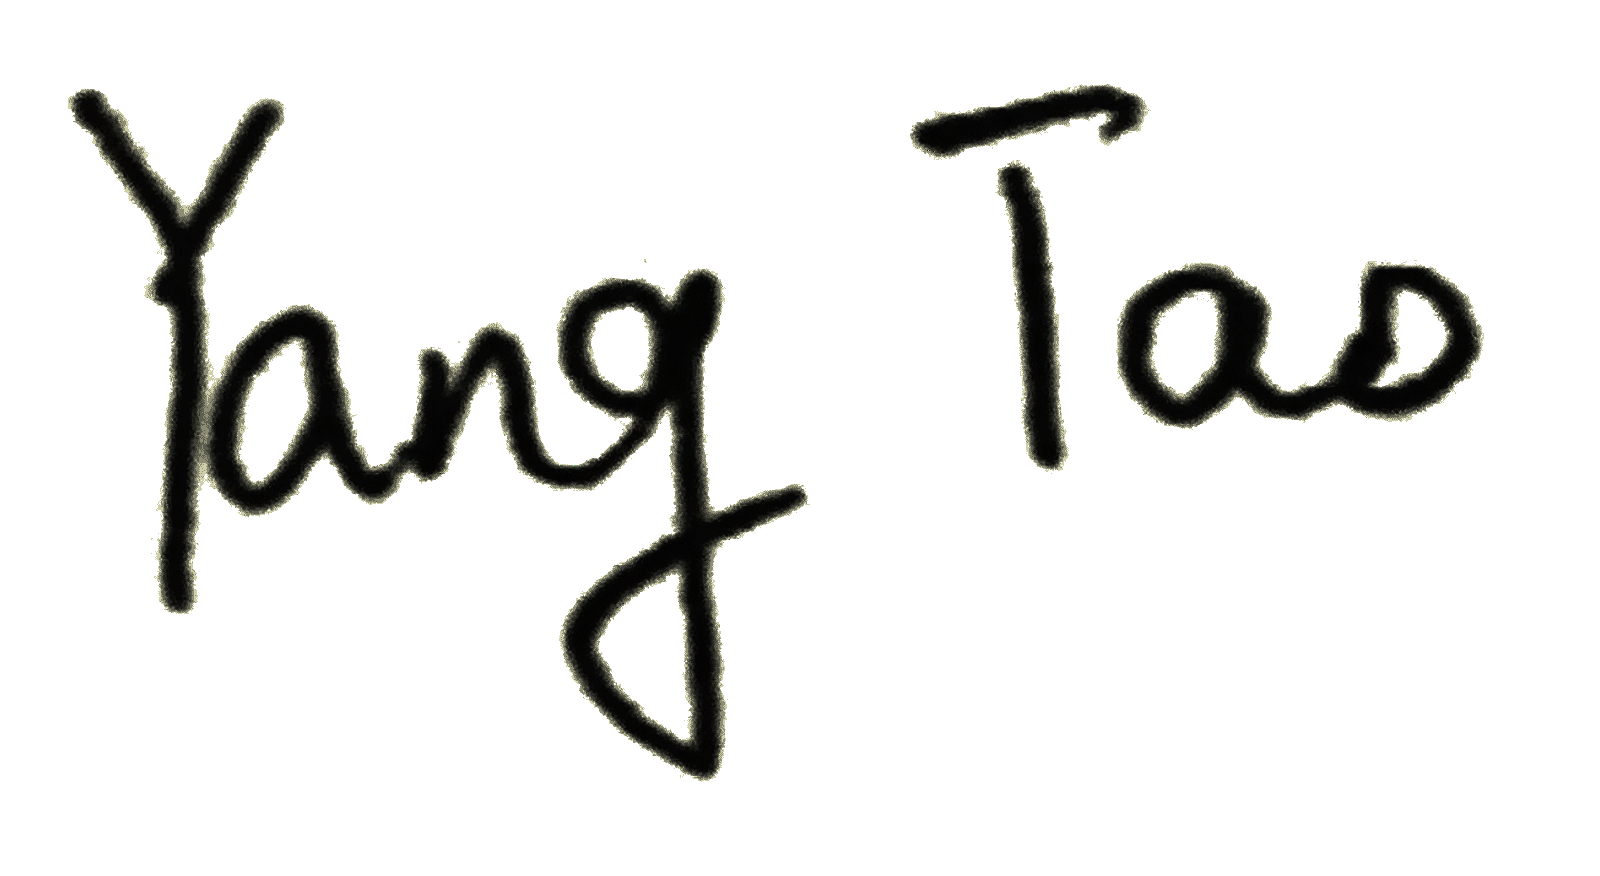 Yang Tao